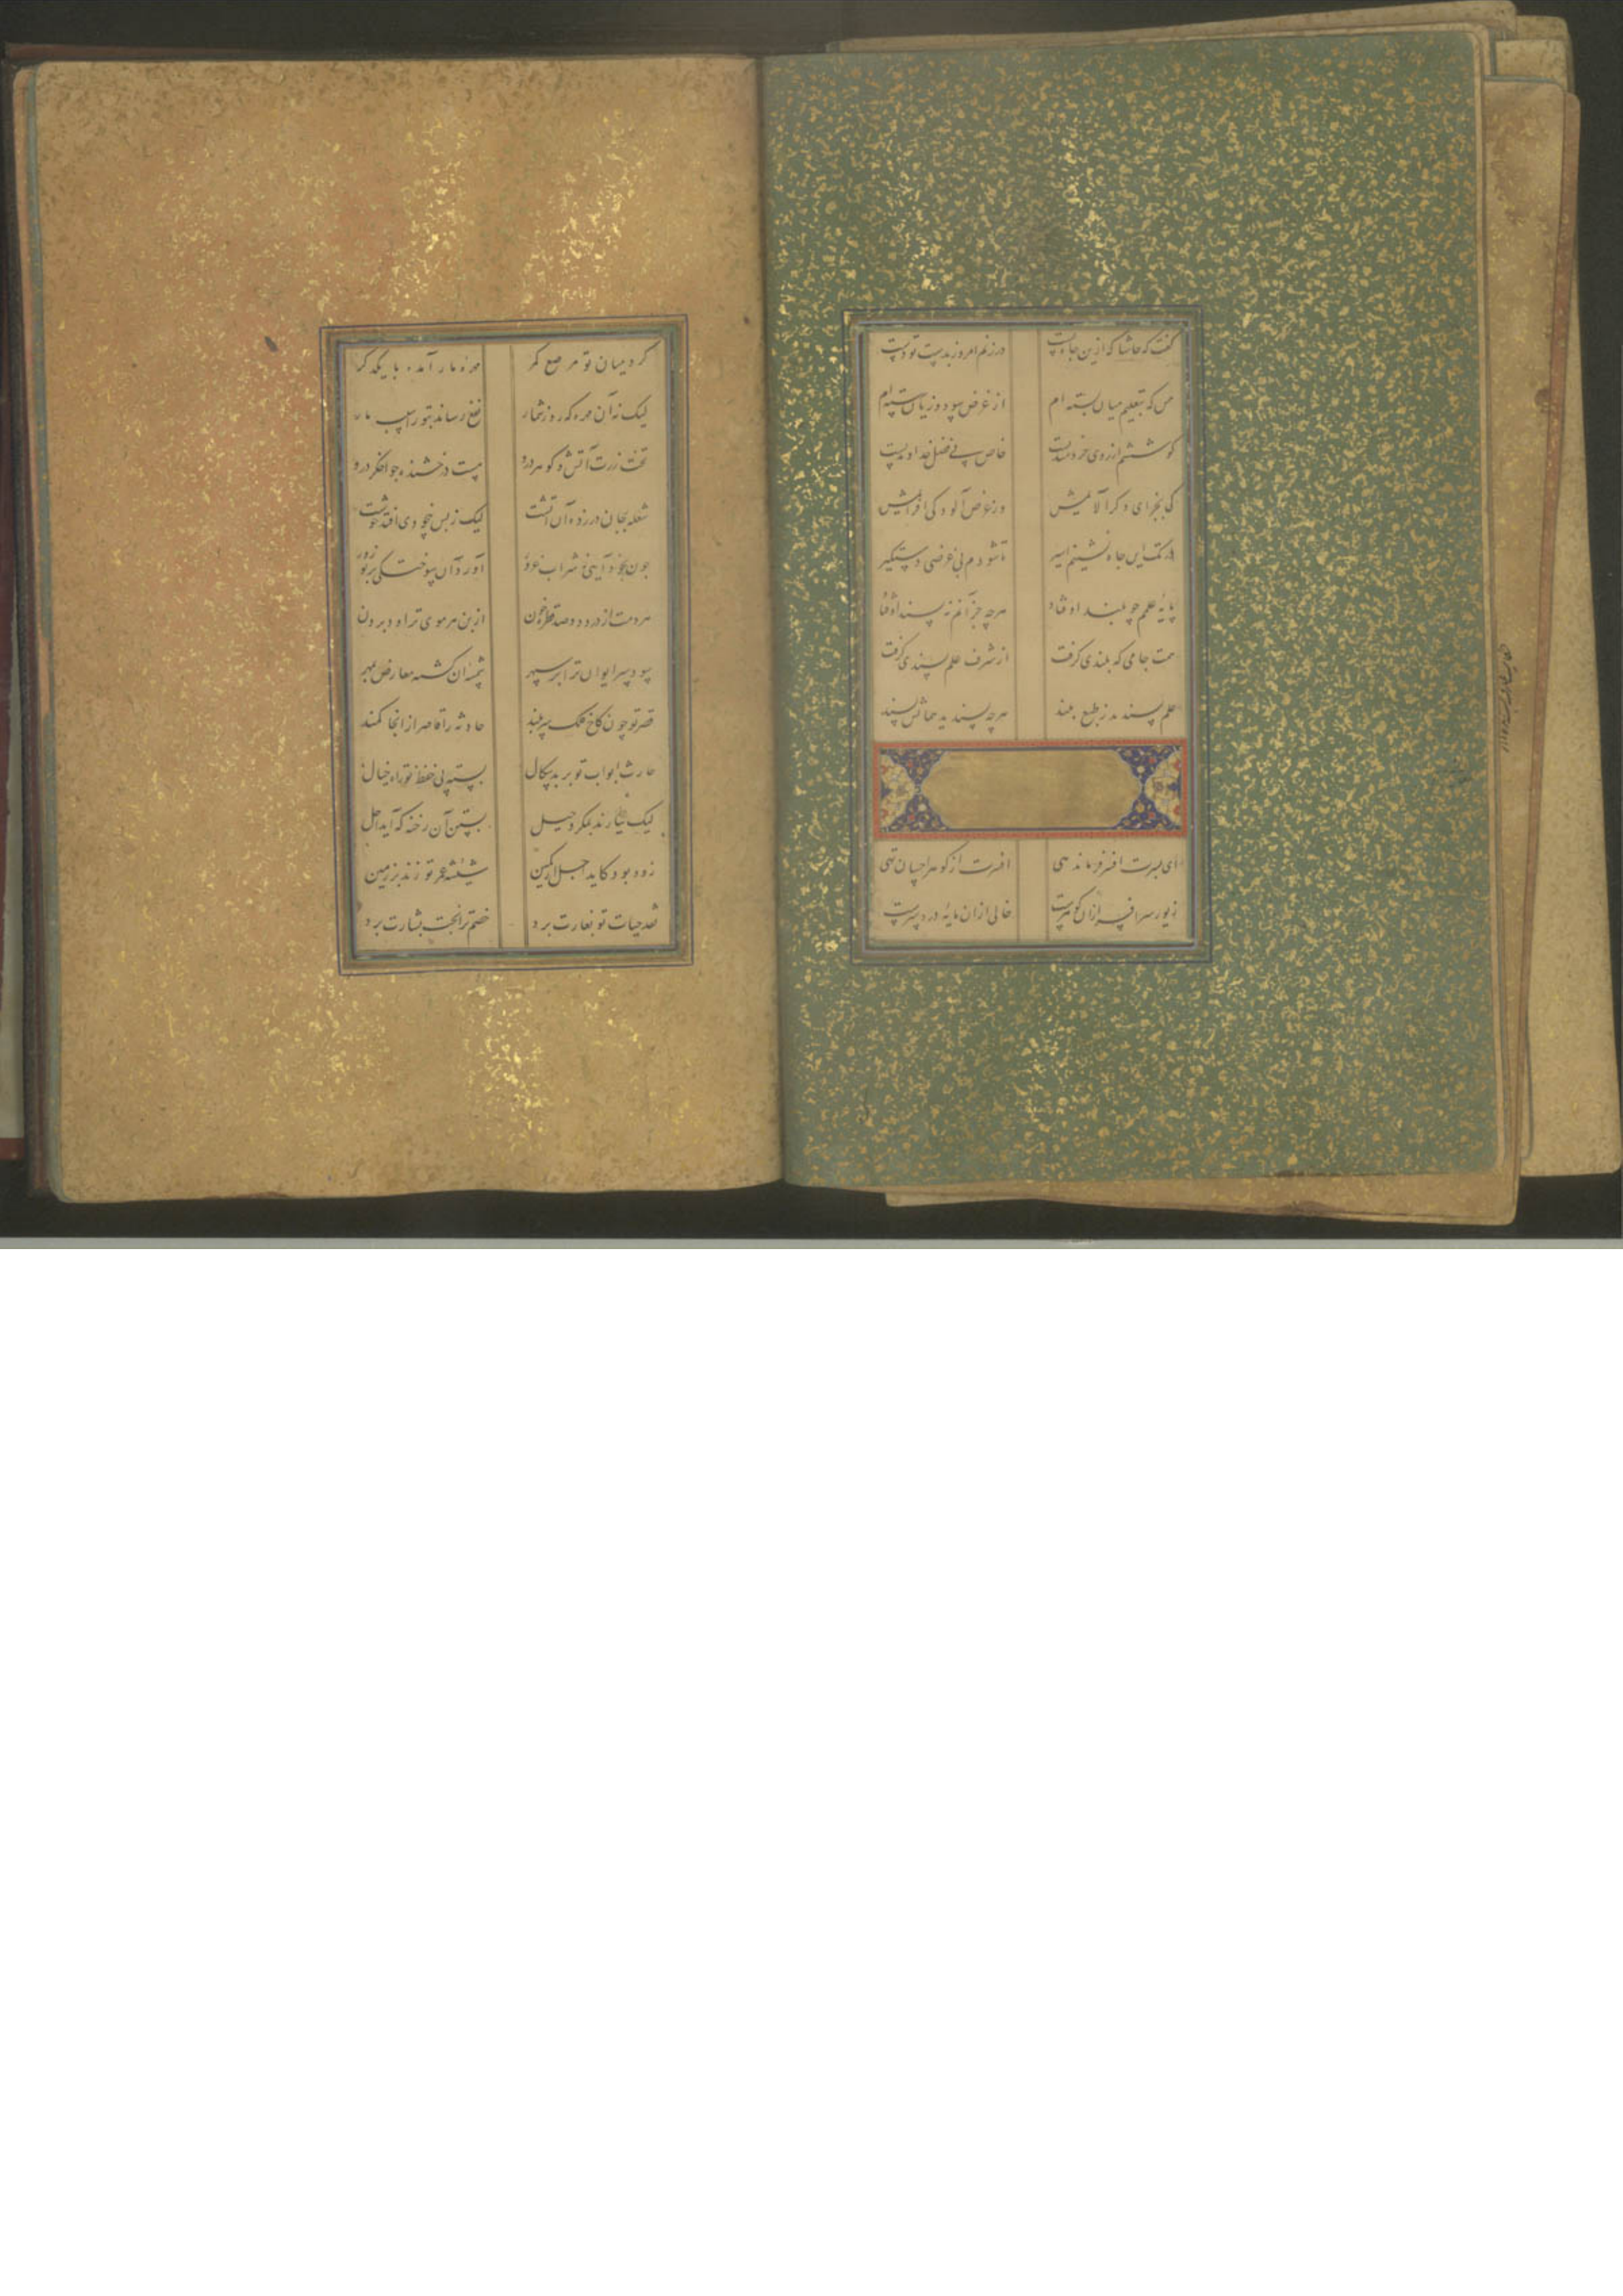 گفت که حاشا که ازین جاه پست
در زنم امروز بدست تو دست
من که بتعلیم میان بسته ام
از غرض سود و زیان رسته ام
کوششم از روی خردمندیست
خاص پی فضل خداوندیست
کی بجزای دگر آلایمش
وز غرض آلودگی افزایمش
تا شود م بی غرضی دستگیر
پایه علم چو بلند اوفتاد
هرچه جز آنم نه پسند اوفتاد
همت جامی که بلندی گرفت
از شرف علم پسندی گرفت
علم پسندید ز طبع بلند
هرچه پسندید هماتش پسند
ای بسرت افسر فرماندهی
افسرت از گوهر احسان تهی
زیور سر افسر ازان گوهرست
خالی ازان مایه درد سرست
گرد میان تو مرصع کمر
مهره مار آمده با یکدگر
لیک نه آن مهره که روز شمار
نفع رساند بتو ز آسیب مار
تخت زرت آتش و گوهر درو
هست درخشنده چو اخگر درو
شعله بجان در زده آن آتشت
لیک ز بس بیخودی افتد خوشت
چون بخود آیی ز شراب غرور
آورد آن سوختگی بر تو زور
هر دمت از درد دو صد قطره خون
از بن هر موی تراود برون
سود سر ایوان ترا بر سپهر
شمسه آن گشته معارض بمهر
قصر تو چون کاخ فلک سربلند
حادثه را قاصر از آنجا کمند
حارث ابواب تو بر بدسگال
بسته پی حفظ تو راه خیال
لیک نیارند بمکر و حیل
بستن آن رخنه که آید اجل
زود بود کاید اجل از کمین
شیشه عمر تو زند بر زمین
نقد حیات تو بغارت برد
خصم ترا بخت بشارت برد